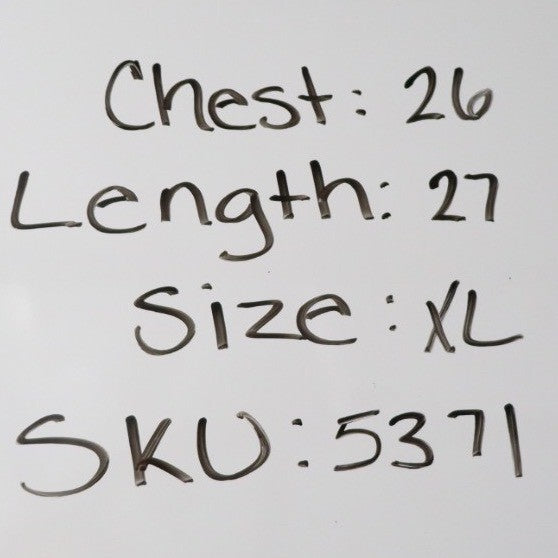 Chest: 26
Length: 27
Size: XL
SKU: 5371